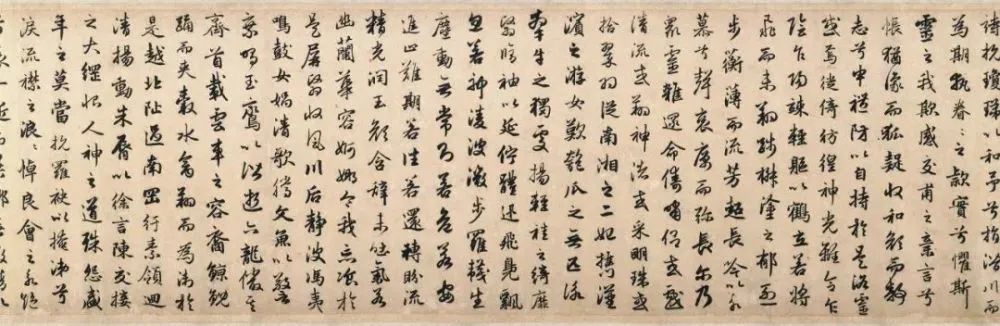 詩抗瓊珶以和予兮指潛川而
為期執眷々之款實兮懼斯
靈之我欺感交甫之棄言兮
悵猶豫而狐疑收和顏而靜
志兮申禮防以自持於是洛靈
感焉徙倚彷徨神光離合乍
陰乍陽竦輕軀以鶴立若將
飛而未翔踐椒塗之郁烈
步蘅薄而流芳超長吟以永
慕兮聲哀厲而彌長爾乃
眾靈雜遝命儔嘯侶或戲
清流或翔神渚或采明珠或
拾翠羽從南湘之二妃攜漢
濱之游女歎匏瓜之無匹詠
牽牛之獨處揚輕袿之綺靡
翳脩袖以延佇體迅飛鳧飄
忽若神凌波微步羅襪生
塵動無常則若危若安
進止難期若往若還轉盼流
精光潤玉顏含辭未吐氣若
幽蘭華容婀娜令我忘飡於
是屏翳收風川后靜波馮夷
鳴鼓女媧清歌騰文魚以警
乘鳴玉鸞以偕逝六龍儼其
齊首載雲車之容裔鯨鯢
踊而夾轂水禽翔而為衛於
是越北沚過南岡紆素領迴
清揚動朱脣以徐言陳交接
之大綱恨人神之道殊怨盛
年之莫當抗羅袂以掩涕兮
淚流襟之浪々悼良會之永絕